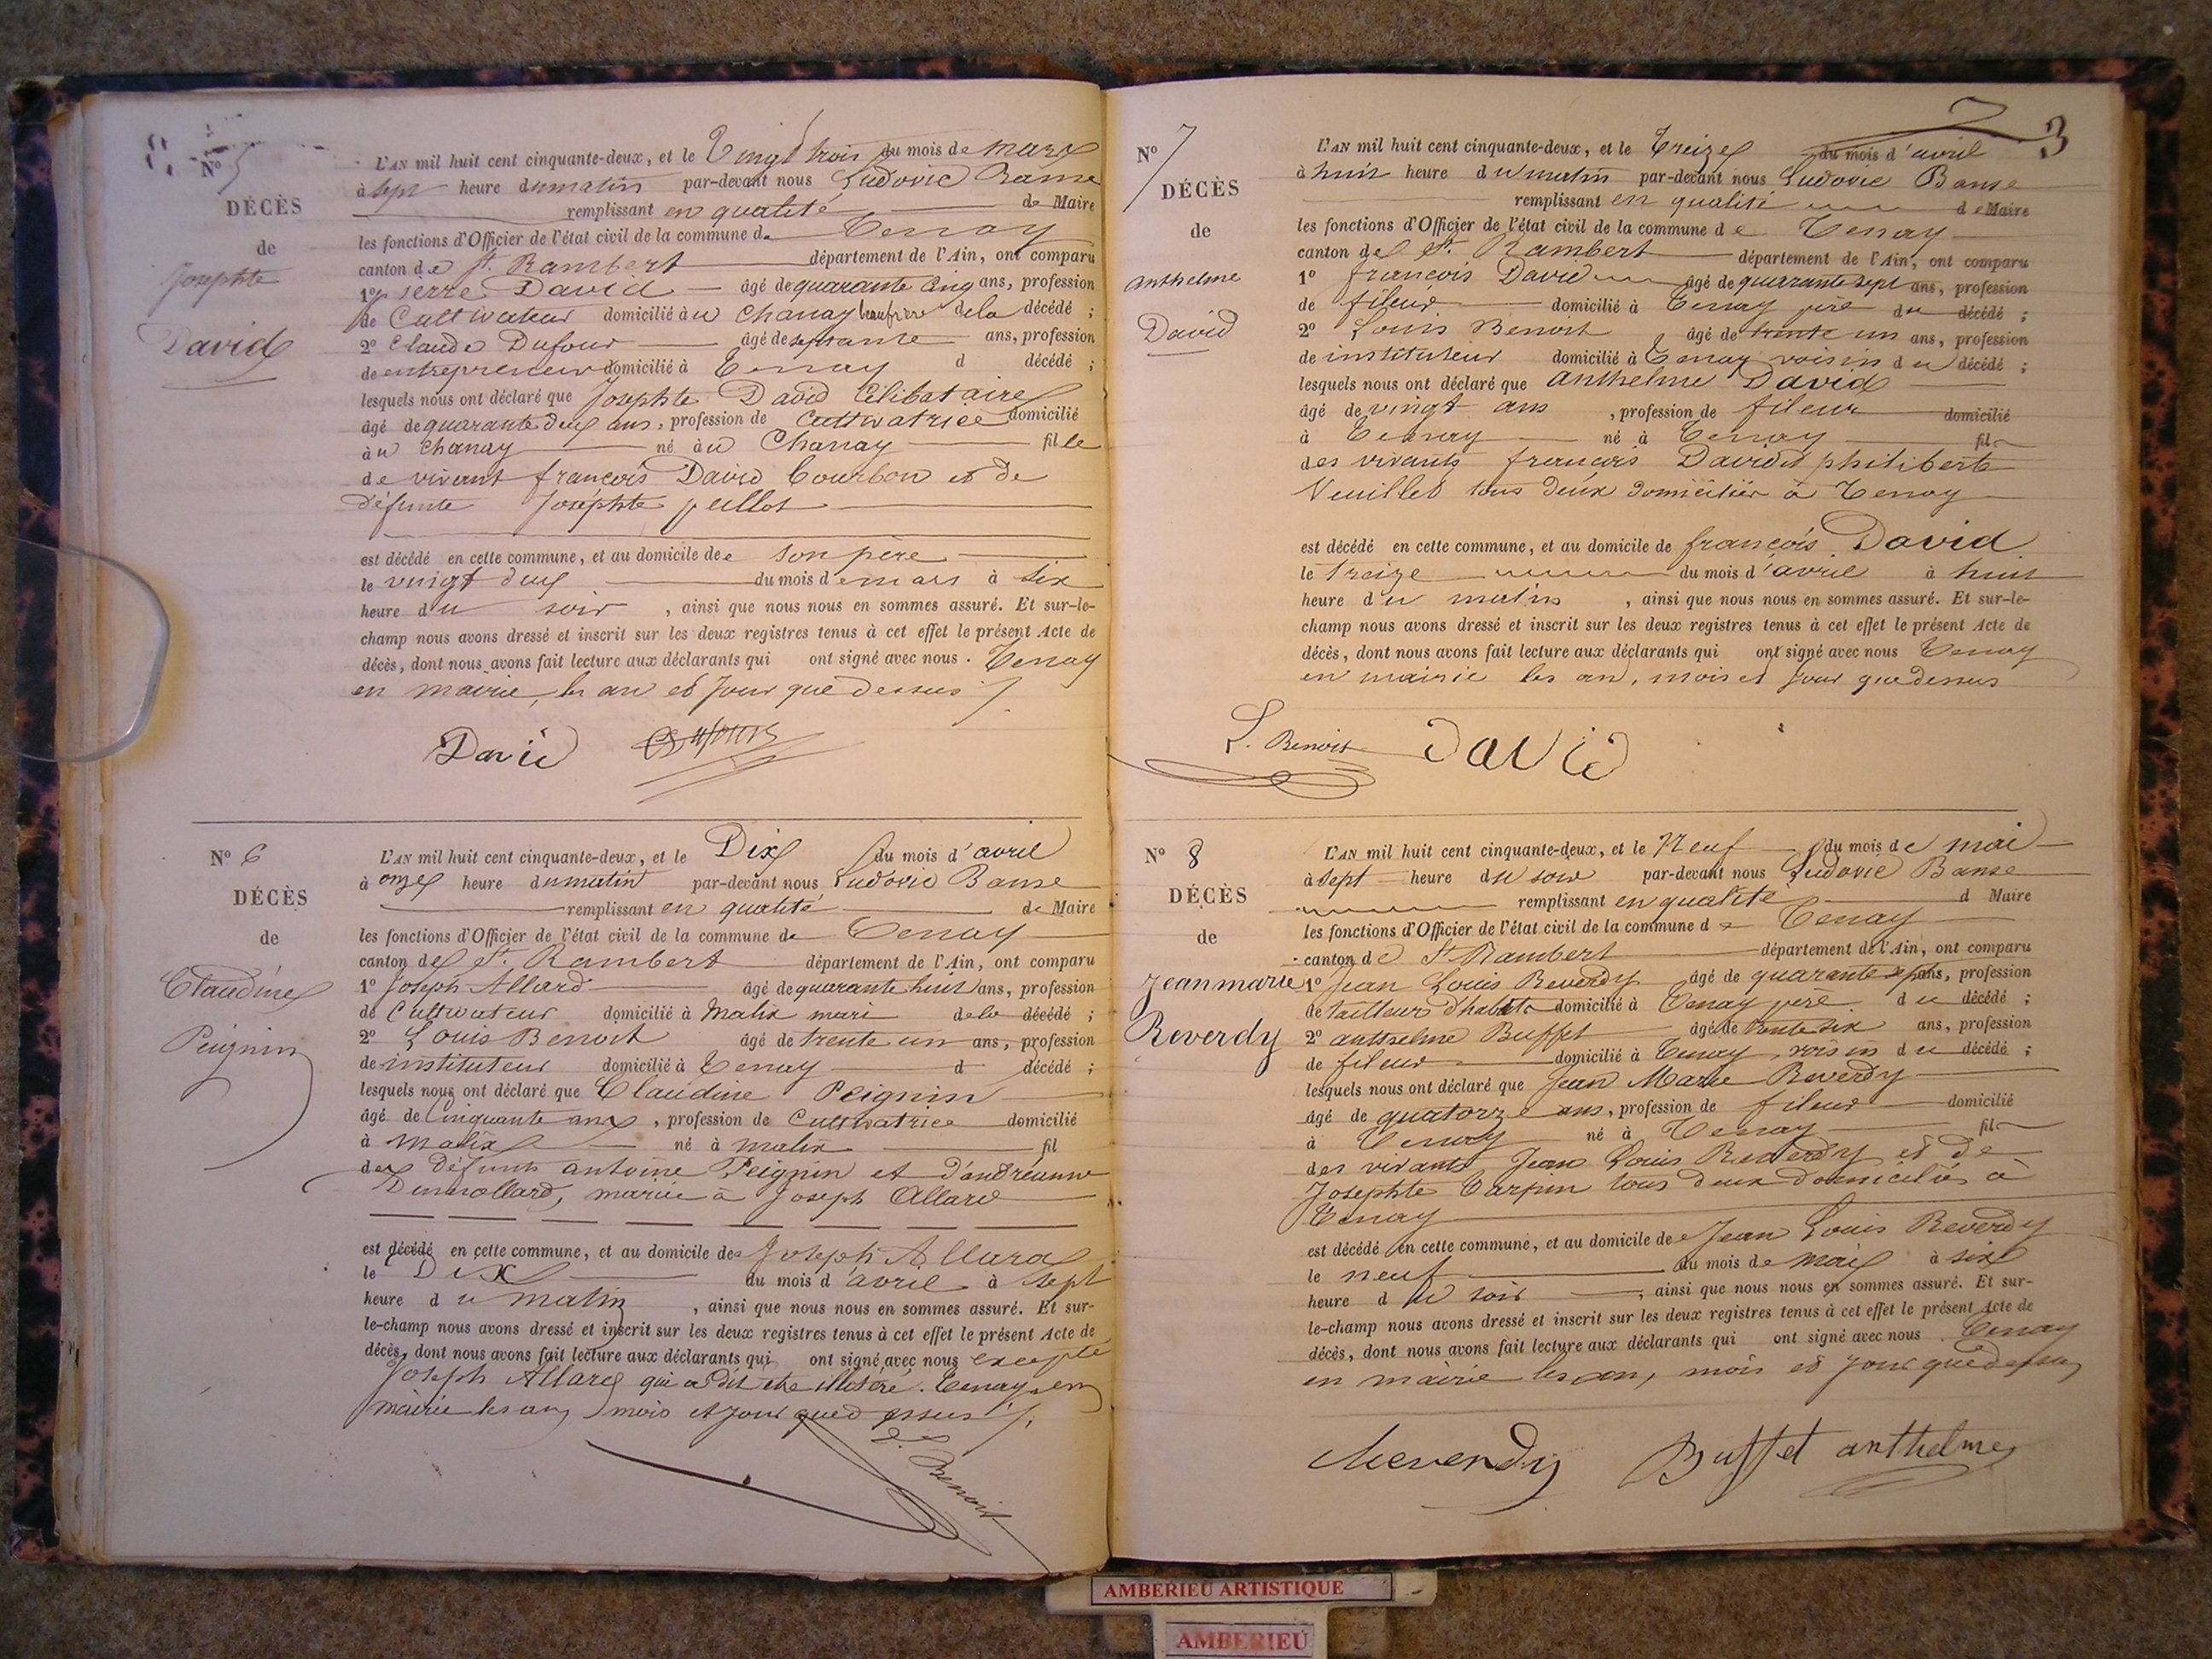 Nº 5
DÉCÈS
de
Josephte
David
L'AN mil huit cent cinquante-deux, et le Vingt trois du mois de mars
à sept heure du matin par-devant nous Ludovic Banse
remplissant en qualité de Maire
les fonctions d'Officier de l'état civil de la commune de Tenay
canton de St. Rambert département de l'Ain, ont comparu
1º pierre David âgé de quarante cinq ans, profession
de Cultivateur domicilié au Chanay beaufrère de la décédé ;
2º Claude Dufour âgé de septante ans, profession
de entrepreneur domicilié à Tenay d décédé ;
lesquels nous ont déclaré que Josephte David Célibataire
âgé de quarante deux ans, profession de Cultivatrice domicilié
au Chanay né au Chanay fille
de vivant françois David Courbon et de
défunte Joséphte peillot
est décédé en cette commune, et au domicile de son père
le vingt deux du mois de mars à six
heure du soir , ainsi que nous nous en sommes assuré. Et sur-le-
champ nous avons dressé et inscrit sur les deux registres tenus à cet effet le présent Acte de
décès, dont nous avons fait lecture aux déclarants qui ont signé avec nous. Tenay
en mairie, les an et jour que dessus
David
Nº 6
DÉCÈS
de
Claudine
Peignin
L'AN mil huit cent cinquante-deux, et le Dix du mois d'avril
à onze heure du matin par-devant nous Ludovic Banse
remplissant en qualité de Maire
les fonctions d'Officier de l'état civil de la commune de Tenay
canton de St. Rambert département de l'Ain, ont comparu
1º Joseph Allard âgé de quarante huit ans, profession
de Cultivateur domicilié à Malix mari de la décédé ;
2º Louis Benoit âgé de trente un ans, profession
de instituteur domicilié à Tenay d décédé ;
lesquels nous ont déclaré que Claudine Peignin
âgé de Cinquante ans , profession de Cultivatrice domicilié
à Malix né à malix fil
des défunts antoine Peignin et d'andréanne
mariée à Joseph Allard
est décédé en cette commune, et au domicile de Joseph Allard
le Dix du mois d'avril à sept
heure du matin , ainsi que nous nous en sommes assuré. Et sur-
le-champ nous avons dressé et inscrit sur les deux registres tenus à cet effet le présent Acte de
décès, dont nous avons fait lecture aux déclarants qui ont signé avec nous excepté
Joseph Allard qui a dit etre illétéré. Tenay, en
mairie les an, mois et jour que dessus
L. Benoit
3
Nº 7
DÉCÈS
de
anthelme
David
L'AN mil huit cent cinquante-deux, et le treize du mois d'avril
à huit heure du matin par-devant nous Ludovic Banse
remplissant en qualité de Maire
les fonctions d'Officier de l'état civil de la commune de Tenay
canton de St. Rambert département de l'Ain, ont comparu
1º françois David âgé de quarante sept ans, profession
de fileur domicilié à Tenay père du décédé ;
2º Louis Benoit âgé de trente un ans, profession
de instituteur domicilié à Tenay voisin du décédé ;
lesquels nous ont déclaré que anthelme David
âgé de vingt ans , profession de fileur domicilié
à Tenay né à Tenay fil
des vivants françois David et philiberte
Veuillet tous deux domiciliés à Tenay
est décédé en cette commune, et au domicile de françois David
le treize du mois d'avril à huit
heure du matin , ainsi que nous nous en sommes assuré. Et sur-le-
champ nous avons dressé et inscrit sur les deux registres tenus à cet effet le présent Acte de
décès, dont nous avons fait lecture aux déclarants qui ont signé avec nous Tenay
en mairie les an, mois et jour que dessus
L. Benoit David
Nº 8
DÉCÈS
de
Jean marie
Reverdy
L'AN mil huit cent cinquante-deux, et le Neuf du mois de mai
à sept heure du soir par-devant nous Ludovic Banse
remplissant en qualité d Maire
les fonctions d'Officier de l'état civil de la commune de Tenay
canton de St Rambert département de l'Ain, ont comparu
1º Jean Louis Reverdy âgé de quarante sept ans, profession
de tailleur d'habit domicilié à Tenay père du décédé ;
2º anthelme Buffet âgé de trente six ans, profession
de fileur domicilié à Tenay, voisin du décédé ;
lesquels nous ont déclaré que Jean Marie Reverdy
âgé de quatorze ans, profession de fileur domicilié
à Tenay né à Tenay fil
des vivants Jean Louis Reverdy et de
Josephte Carpin tous deux domiciliés à
Tenay
est décédé en cette commune, et au domicile de Jean Louis Reverdy
le neuf du mois de mai à six
heure du soir , ainsi que nous nous en sommes assuré. Et sur-
le-champ nous avons dressé et inscrit sur les deux registres tenus à cet effet le présent Acte de
décès, dont nous avons fait lecture aux déclarants qui ont signé avec nous. Tenay
en mairie les an, mois et jour que dessus
Reverdy Buffet anthelme
AMBERIEU ARTISTIQUE
AMBERIEU